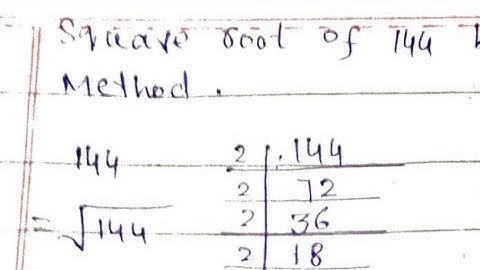 Square root of 144
Method.
144
= √144
2 | 144
2 | 72
2 | 36
2 | 18